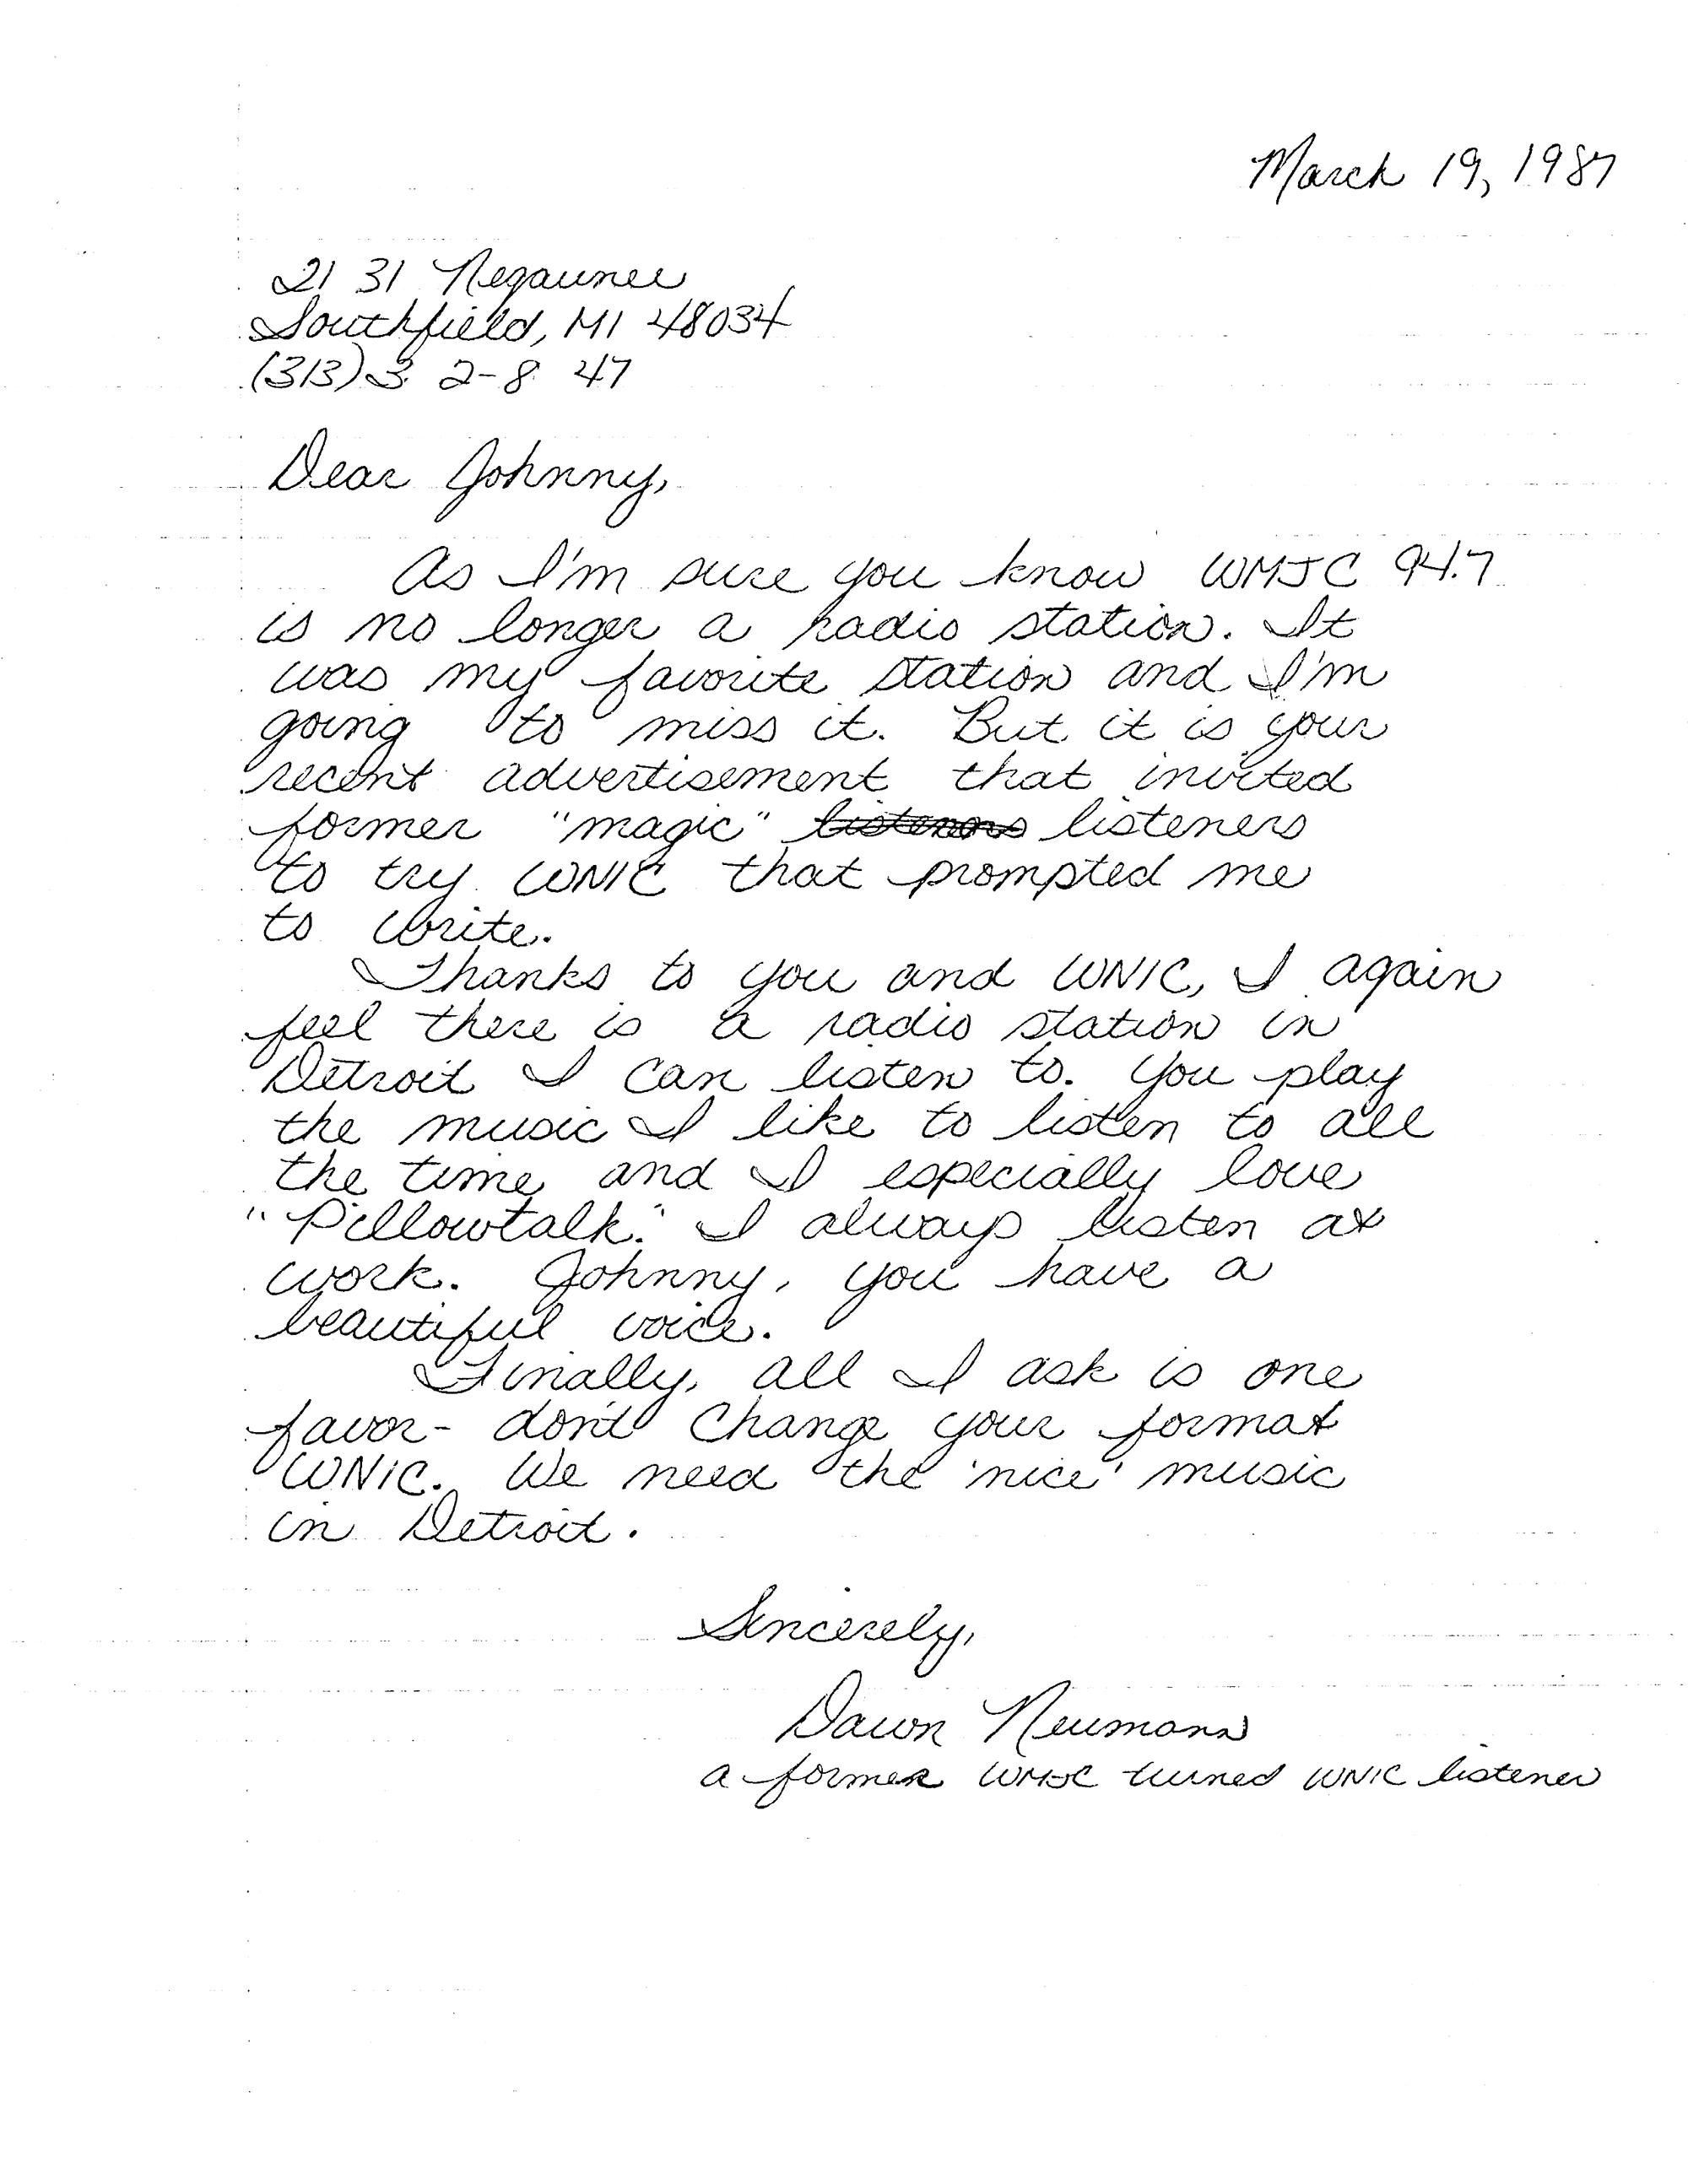 March 19, 1987
21 31 Negaunee
Southfield, MI 48034
(313) 3 2-8 47
Dear Johnny,
As I'm sure you know WMJC 94.7
is no longer a radio station. It
was my favorite station and I'm
going to miss it. But it is your
recent advertisement that invited
former "magic" listeners
to try WNIC that prompted me
to write.
Thanks to you and WNIC, I again
feel there is a radio station in
Detroit I can listen to. You play
the music I like to listen to all
the time and I especially love
"Pillowtalk." I always listen at
work. Johnny, you have a
beautiful voice.
Finally, all I ask is one
favor- don't change your format
WNIC. We need the 'nice' music
in Detroit.
Sincerely,
Dawn Neumann
a former WMJC turned WNIC listener